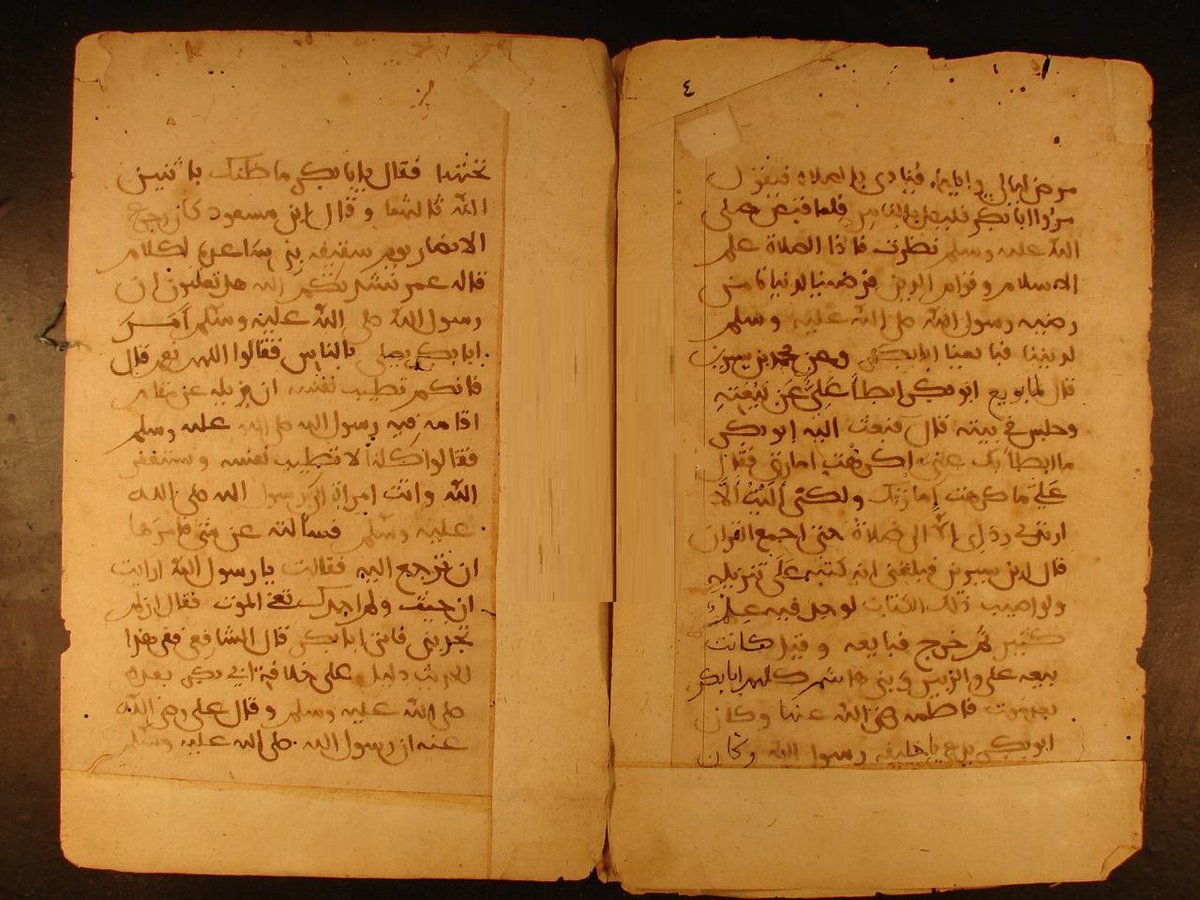 ٤
مرض ليالي واياما فينادى بالصلاة فيقول
مروا ابا بكر فليصل بالناس فلما قبض صلى
الله عليه وسلم نظرت فاذا الصلاة علم
الاسلام وقوام الدين فرضينا لدنيانا من
رضيه رسول الله صلى الله عليه وسلم
لديننا فبايعنا ابا بكر وعن محمد بن سيرين
قال لما بويع ابو بكر ابطأ عليّ عن بيعته
وجلس في بيته قال فبعث اليه ابو بكر
ما ابطأ بك عني اكرهت امارتي فقال
عليّ ما كرهت إمارتك ولكني آليت ألا
ارتدي رداي إلا الى صلاة حتى اجمع القران
قال ابن سيرين فبلغني انه كتبه على تنزيله
ولو اصيب ذلك الكتاب لوجد فيه علم
كثير ثم خرج فبايعه وقيل كانت
بيعة علي والزبير وبني هاشم كلهم ابا بكر
بعد موت فاطمة رضي الله عنها وكان
ابو بكر يدعى يا خليفة رسول الله وكان
تحتهما فقال يا با بكر ما ظنك باثنين
الله ثالثهما وقال ابن مسعود كان رجوع
الانصار يوم سقيفة بني ساعدة لكلام
قاله عمر نشدتكم الله هل تعلمون ان
رسول الله صلى الله عليه وسلم أمَرَ
ابا بكر يصلي بالناس فقالوا اللهم نعم قال
فايكم تطيب نفسه ان يزيله عن مقام
اقامه فيه رسول الله صلى الله عليه وسلم
فقالوا كلنا لا تطيب نفسه ونستغفر
الله واتت امراة الى رسول الله صلى الله
عليه وسلم فسألته عن شي فامرها
ان ترجع اليه فقالت يا رسول الله ارايت
ان جيت ولم اجدك تعني الموت فقال ان لم
تجديني فاتي ابا بكر قال الشافعي ففي هذا
الحديث دليل على خلافة ابي بكر بعده
صلى الله عليه وسلم وقال علي رضي الله
عنه ان رسول الله صلى الله عليه وسلم